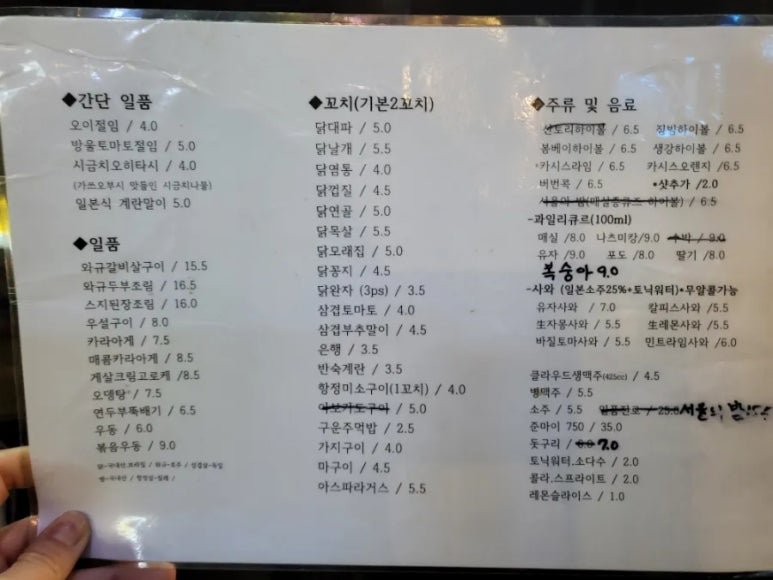 ◆간단 일품
오이절임 / 4.0
방울토마토절임 / 5.0
시금치오히타시 / 4.0
(가쓰오부시 맛들인 시금치나물)
일본식 계란말이 5.0
◆일품
와규갈비살구이 / 15.5
와규두부조림 / 16.5
스지된장조림 / 16.0
우설구이 / 8.0
카라아게 / 7.5
매콤카라아게 / 8.5
게살크림고로케 /8.5
오뎅탕 / 7.5
연두부뚝배기 / 6.5
우동 / 6.0
볶음우동 / 9.0
닭-국내산.브라질 / 와규-호주 / 삼겹살-독일
쌀-국내산 / 항정살-칠레 /
◆꼬치(기본2꼬치)
닭대파 / 5.0
닭날개 / 5.5
닭염통 / 4.0
닭껍질 / 4.5
닭연골 / 5.0
닭목살 / 5.5
닭모래집 / 5.0
닭꽁지 / 4.5
닭완자 (3ps) / 3.5
삼겹토마토 / 4.0
삼겹부추말이 / 4.5
은행 / 3.5
반숙계란 / 3.5
항정미소구이(1꼬치) / 4.0
아보카도구이 / 5.0
구운주먹밥 / 2.5
가지구이 / 4.0
마구이 / 4.5
아스파라거스 / 5.5
◆주류 및 음료
산토리하이볼 / 6.5 짐빔하이볼 / 6.5
봄베이하이볼 / 6.5 생강하이볼 / 6.5
*카시스라임 / 6.5 카시스오렌지 /6.5
버번콕 / 6.5 *샷추가 /2.0
서울의 밤(매실증류주 하이볼) / 6.5
-과일리큐르(100ml)
매실 /8.0 나츠미캉/9.0 수박 / 9.0
유자 /9.0 포도 /8.0 딸기 /8.0
복숭아 9.0
-사와 (일본소주25%+토닉워터)*무알콜가능
유자사와 / 7.0 칼피스사와 /5.5
生자몽사와 / 5.5 生레몬사와 /5.5
바질토마사와 / 5.5 민트라임사와 /6.0
클라우드생맥주(425cc) / 4.5
병맥주 / 5.5
소주 / 5.5 일품진로 / 25.0 서울의 밤
준마이 750 / 35.0
돗구리 / 6.0 7.0
토닉워터.소다수 / 2.0
콜라.스프라이트 / 2.0
레몬슬라이스 / 1.0